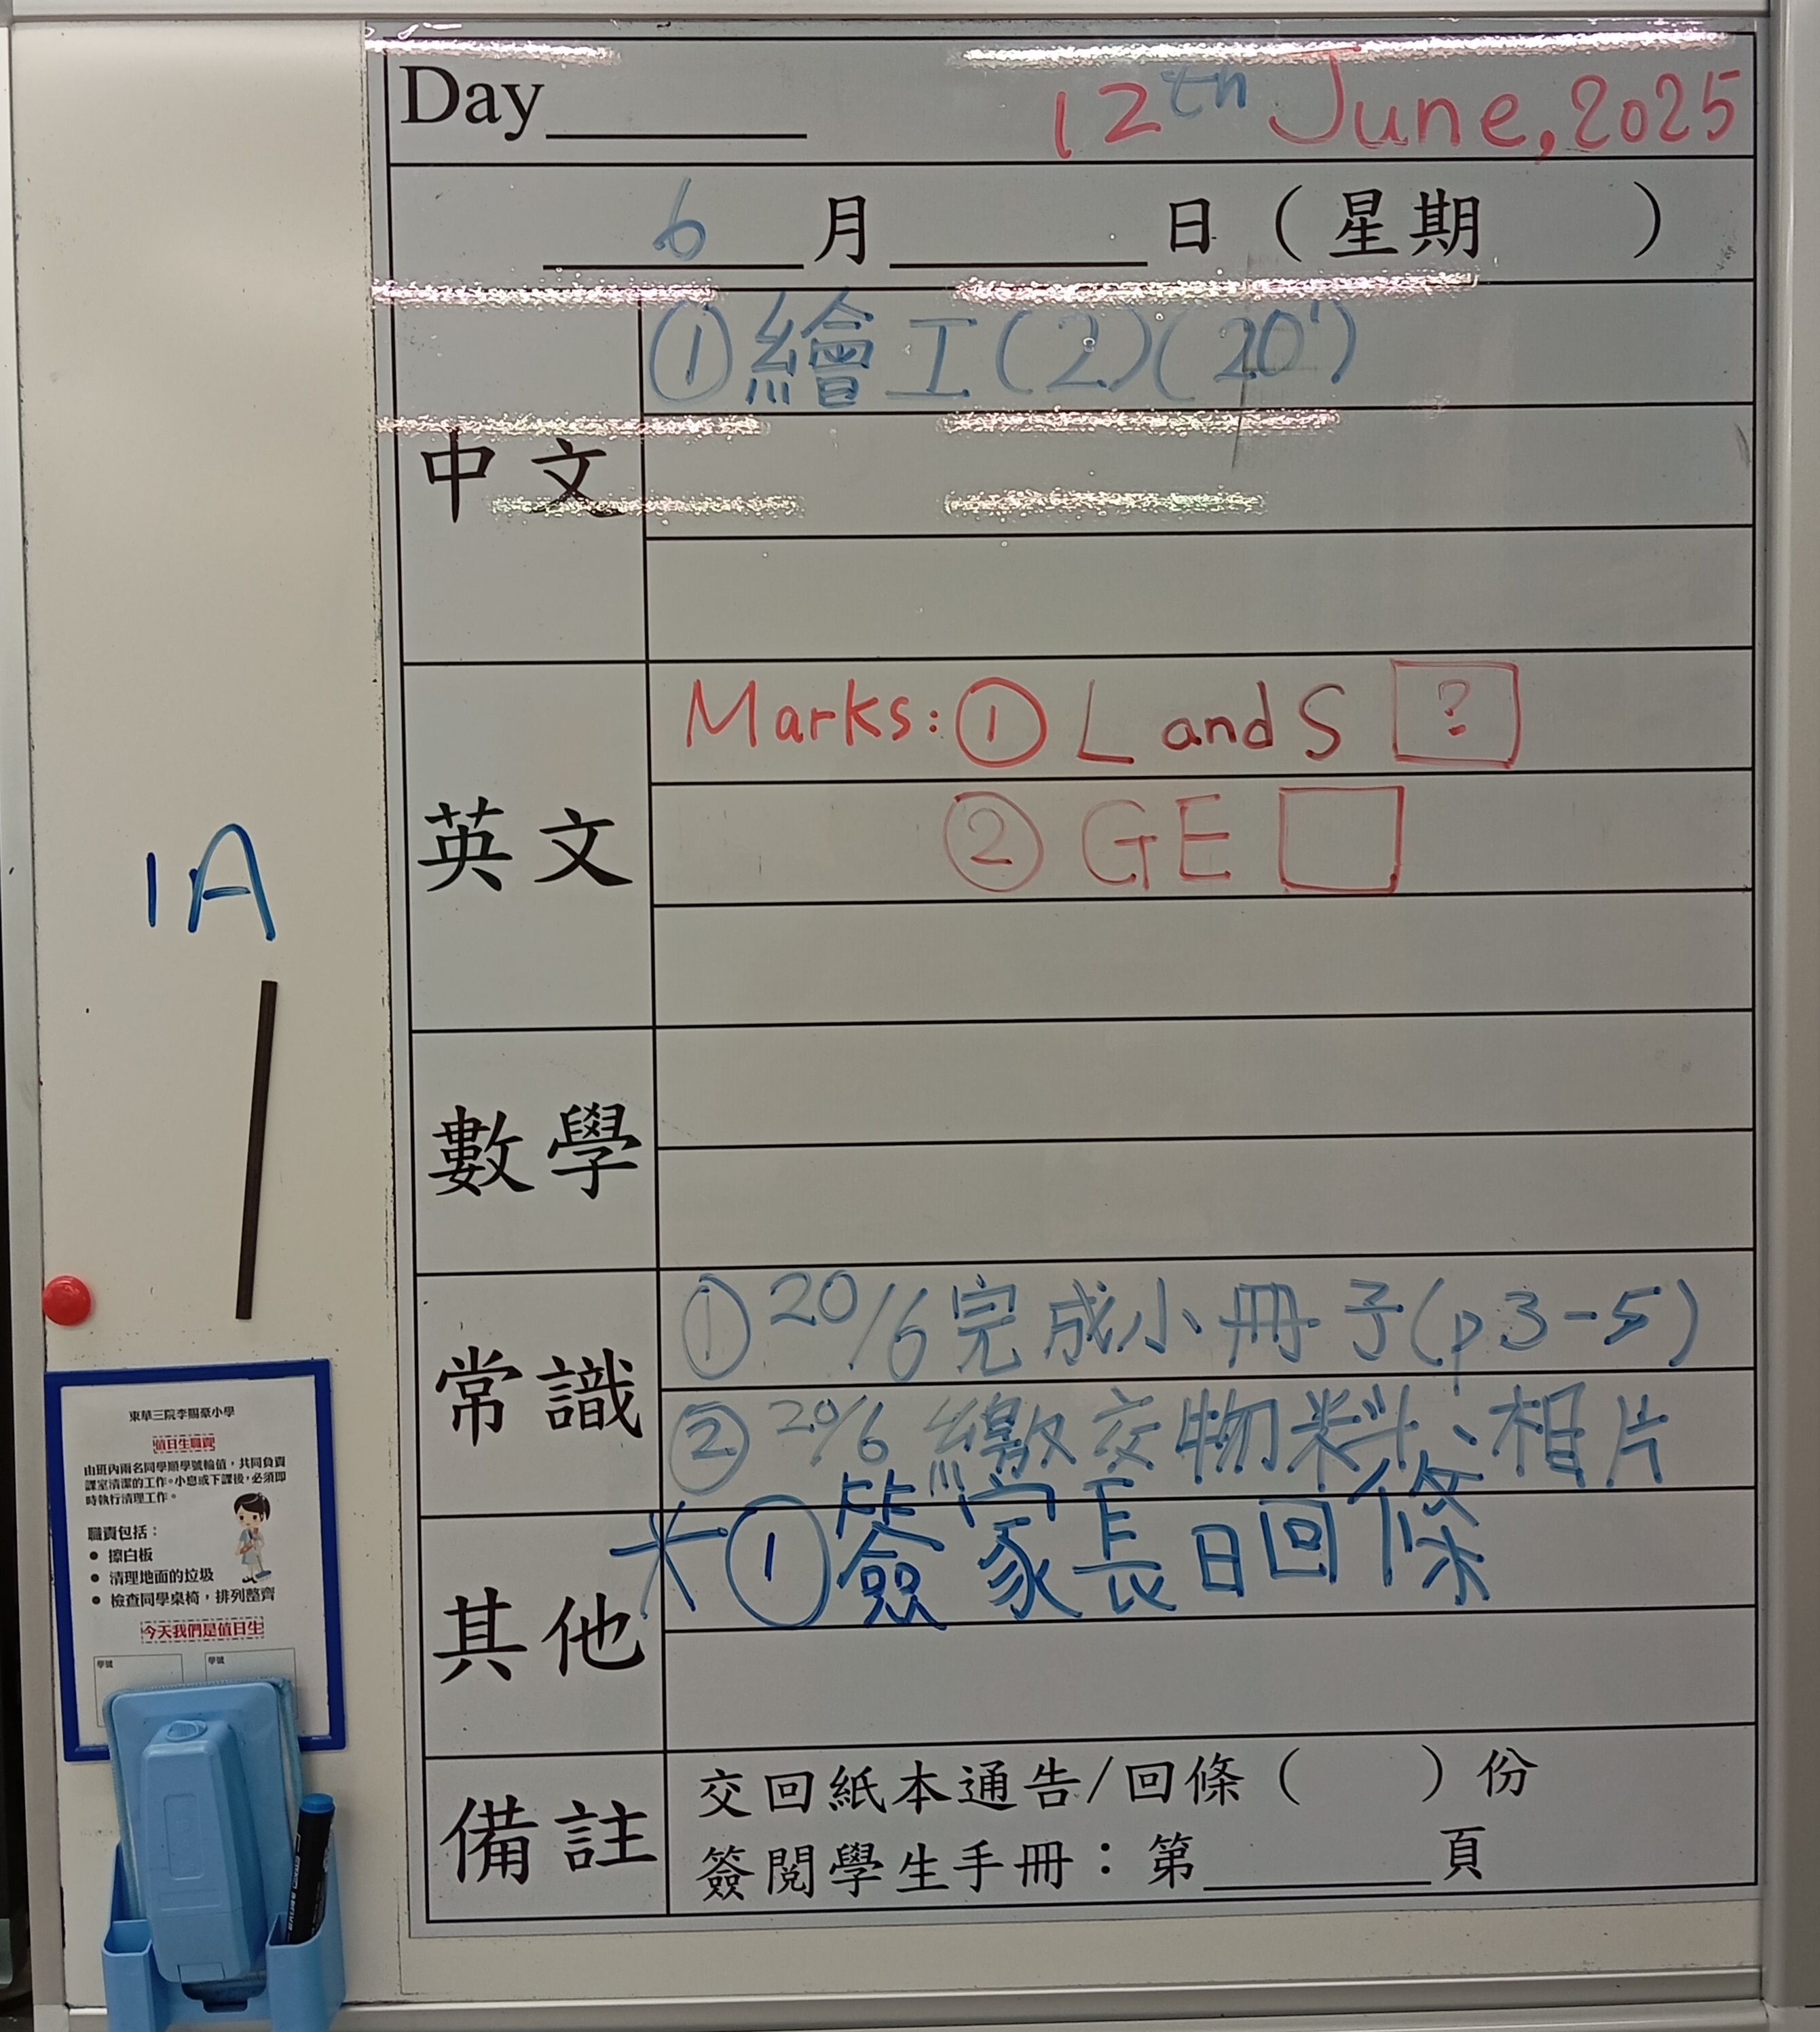 Day______ 12th June, 2025
6 月 ______ 日（星期　　）
中文
①繪工(2)(20')
英文
Marks: ① L and S ?
② GE
數學
常識
①20/6完成小冊子(p3-5)
②20/6繳交物料、相片
其他
*①簽家長日回條
備註
交回紙本通告/回條（　　）份
簽閱學生手冊：第______頁
1A
東華三院李賜豪小學
值日生職責
由班內兩名同學順學號輪值，共同負責
課室清潔的工作。小息或下課後，必須即
時執行清理工作。
職責包括：
● 擦白板
● 清理地面的垃圾
● 檢查同學桌椅，排列整齊
今天我們是值日生
學號 學號